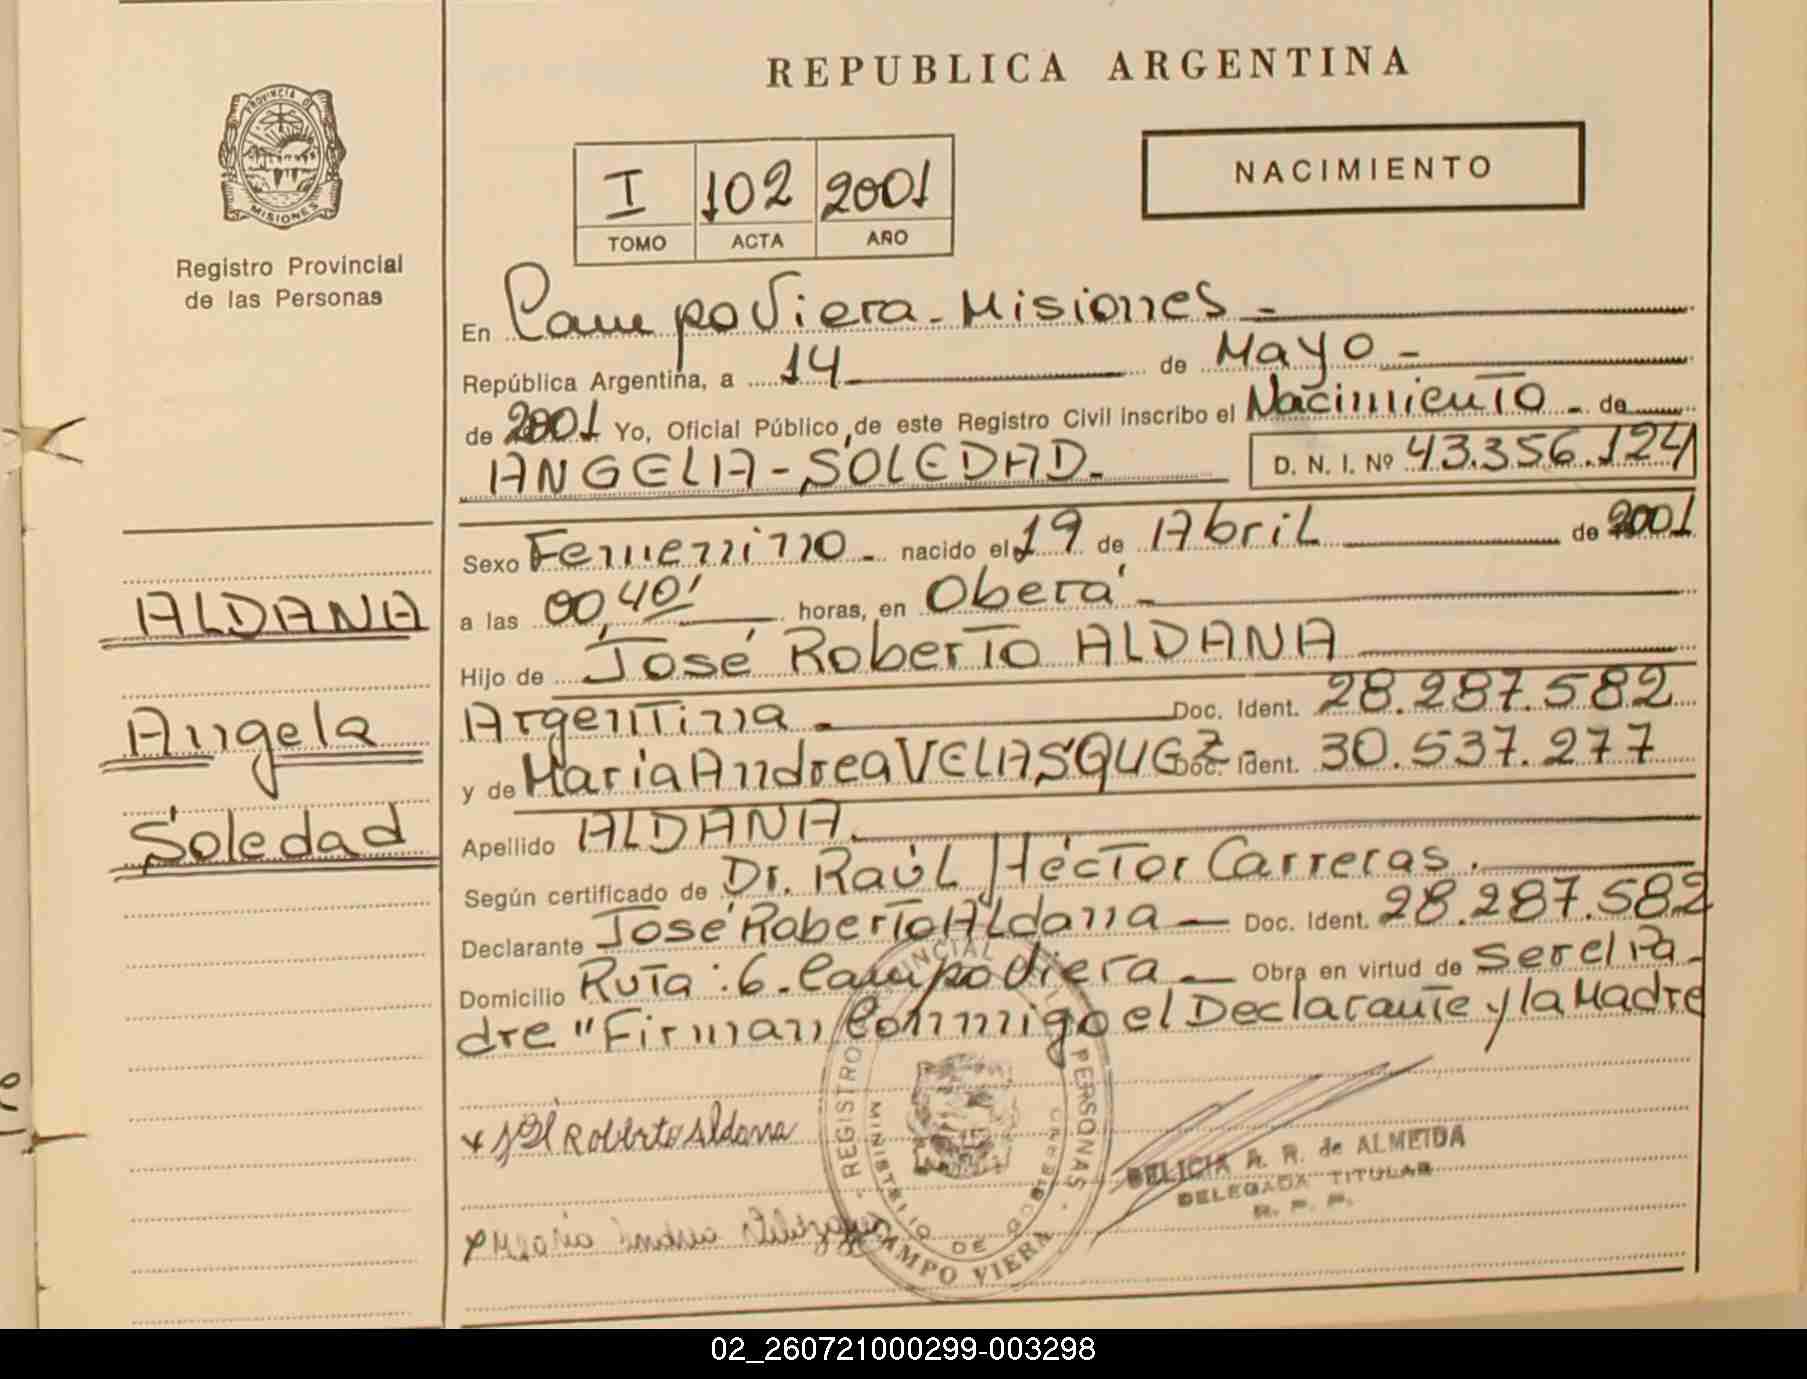 REPUBLICA ARGENTINA
PROVINCIA DE
MISIONES
Registro Provincial
de las Personas
NACIMIENTO
I 102 2001
TOMO ACTA AÑO
En Campo Viera - Misiones -
República Argentina, a 14 de Mayo -
de 2001 Yo, Oficial Público, de este Registro Civil inscribo el Nacimiento - de
ANGELA - SOLEDAD - D. N. I. Nº 43.356.124
Sexo Femenino - nacido el 19 de Abril de 2001
a las 00,40' horas, en Oberá -
Hijo de José Roberto ALDANA
Argentina - Doc. Ident. 28.287.582
y de Maria Andrea VELASQUEZ - Doc. Ident. 30.537.277
Apellido ALDANA.
Según certificado de Dr. Raúl Héctor Carreras.
Declarante José Roberto Aldana - Doc. Ident. 28.287.582
Domicilio Ruta: 6 - Campo Viera - Obra en virtud de ser el Pa-
dre "Firman Conmigo el Declarante y la Madre
ALDANA
Angela
Soledad
x José Roberto Aldana
x Maria Andrea
REGISTRO PROVINCIAL DE LAS PERSONAS
MINISTERIO DE GOBIERNO
CAMPO VIERA
DELICIA A. R. de ALMEIDA
DELEGADA TITULAR
R. P. P.
02_260721000299-003298